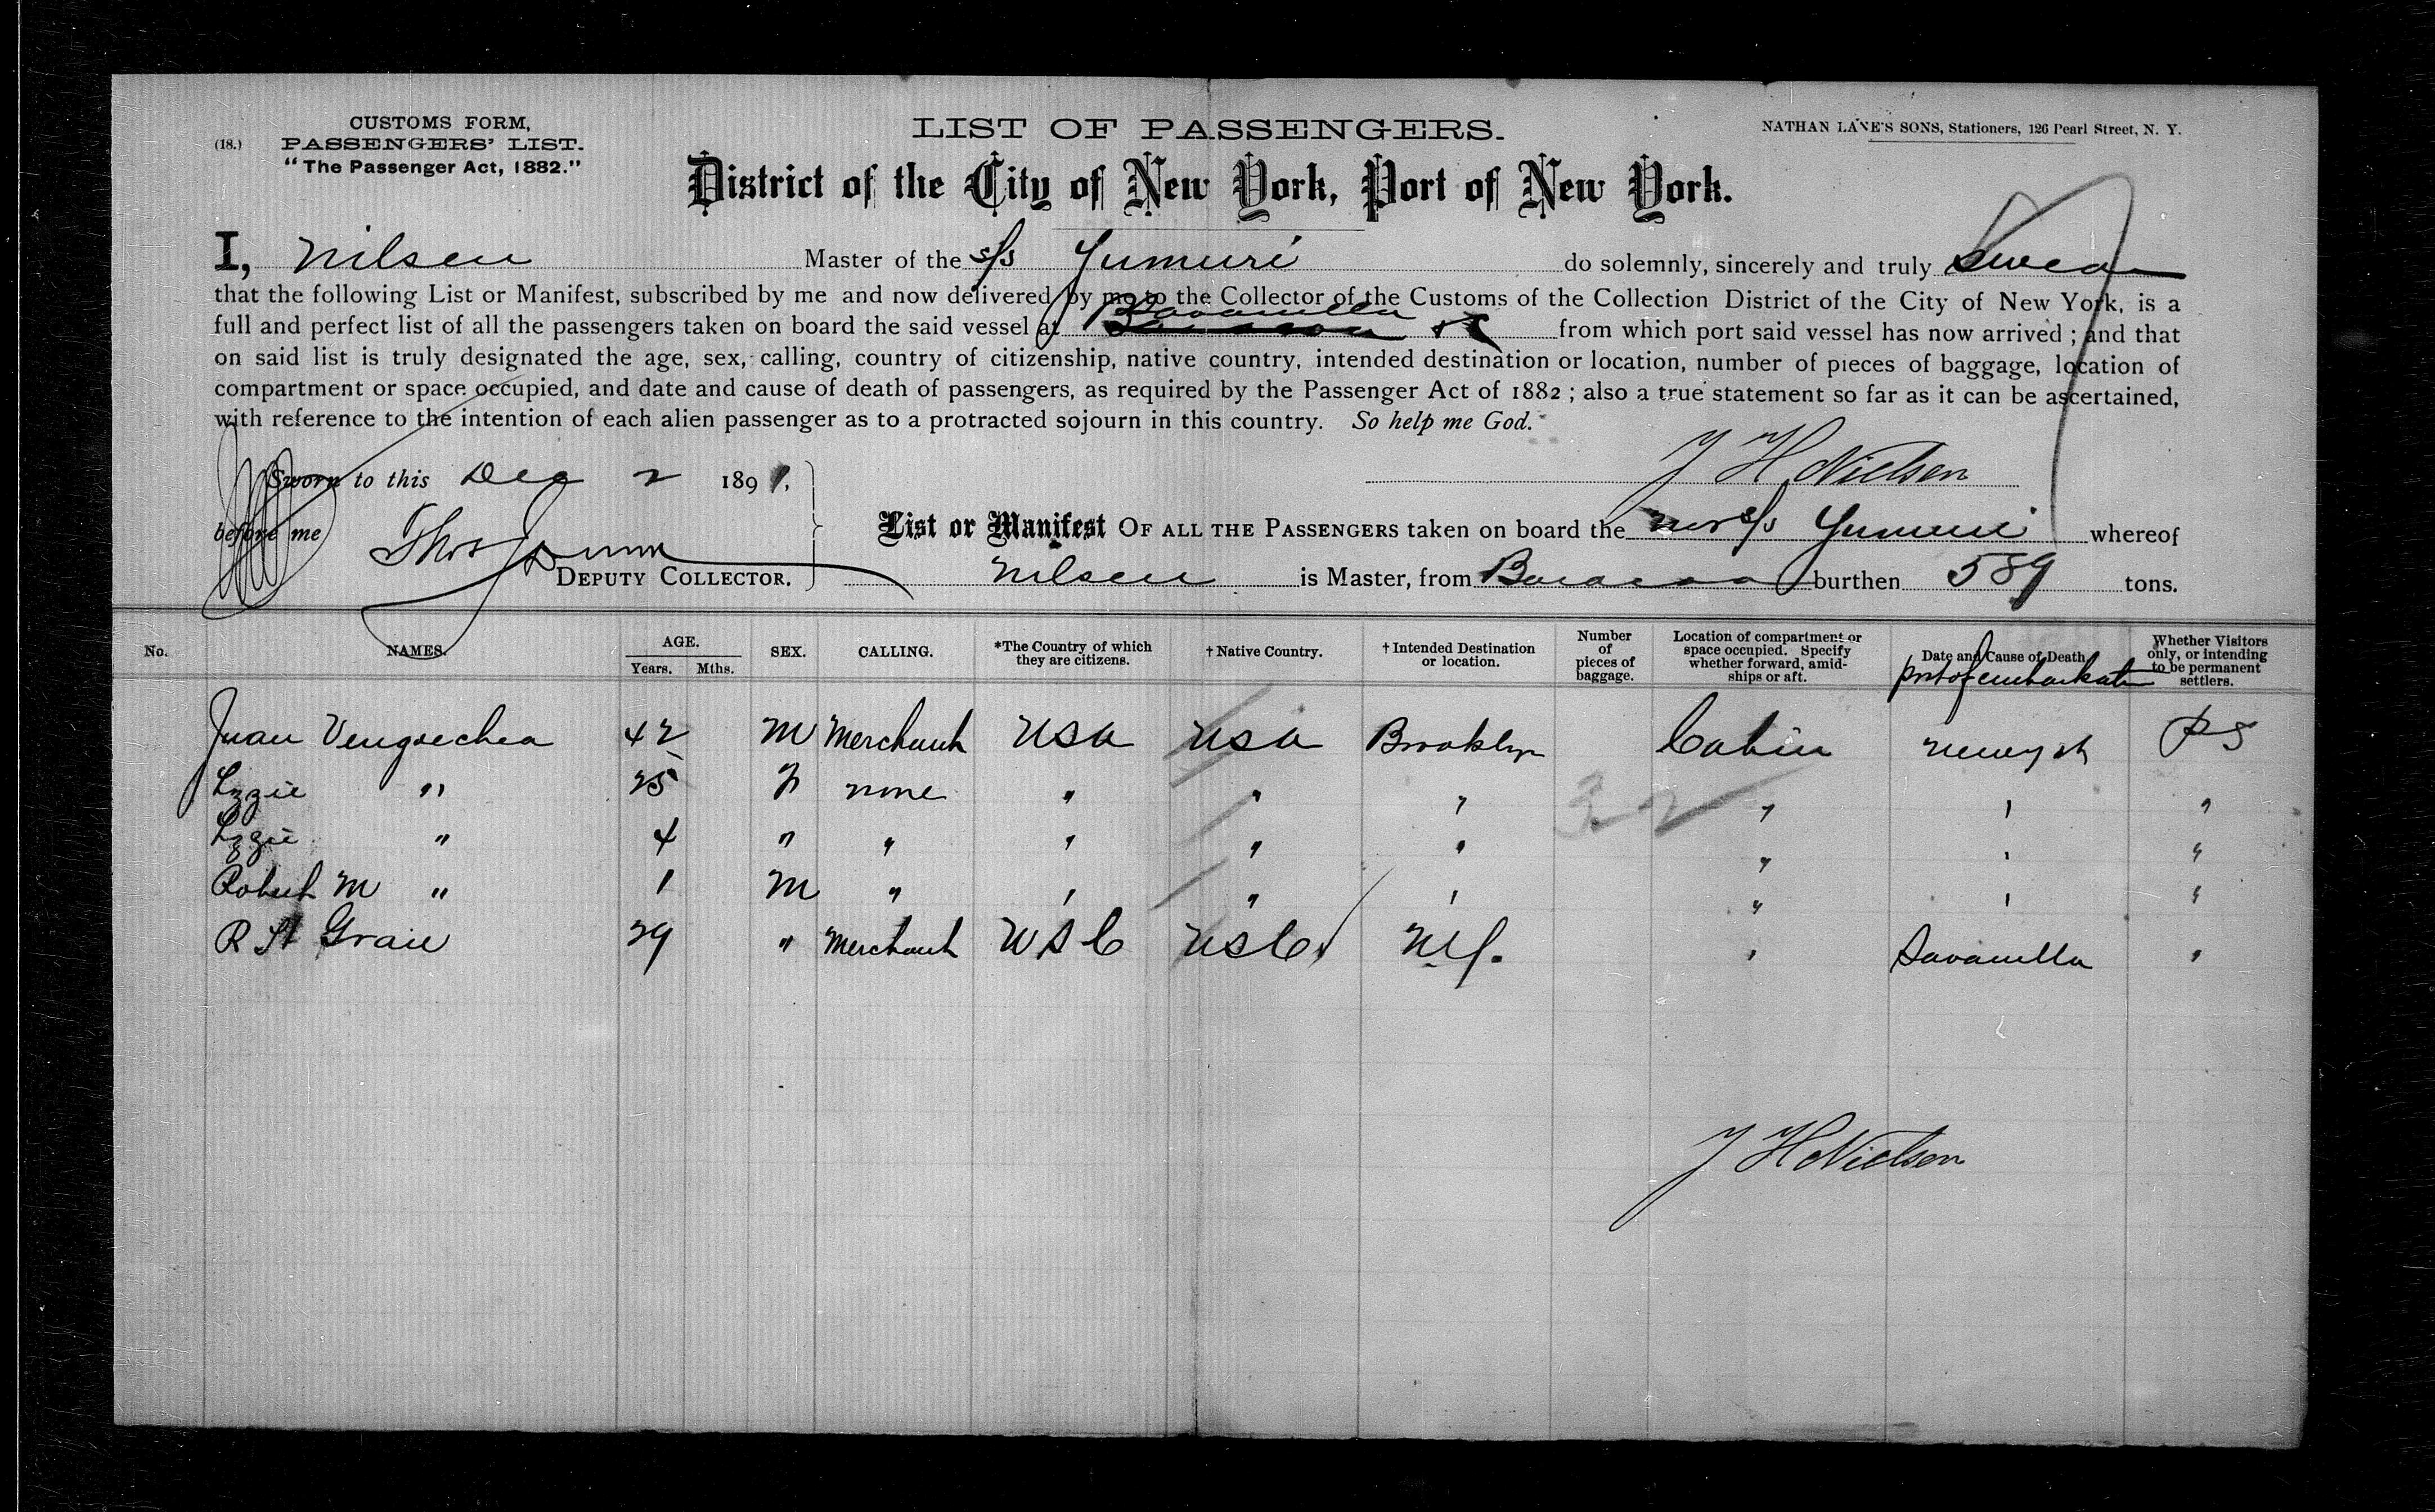 CUSTOMS FORM,
(18.) PASSENGERS' LIST.
"The Passenger Act, 1882."
LIST OF PASSENGERS.
NATHAN LANE'S SONS, Stationers, 126 Pearl Street, N. Y.
District of the City of New York, Port of New York.
I, Nilsen Master of the s/s Yumuri do solemnly, sincerely and truly Swear
that the following List or Manifest, subscribed by me and now delivered by me to the Collector of the Customs of the Collection District of the City of New York, is a
full and perfect list of all the passengers taken on board the said vessel at Savanilla from which port said vessel has now arrived ; and that
on said list is truly designated the age, sex, calling, country of citizenship, native country, intended destination or location, number of pieces of baggage, location of
compartment or space occupied, and date and cause of death of passengers, as required by the Passenger Act of 1882 ; also a true statement so far as it can be ascertained,
with reference to the intention of each alien passenger as to a protracted sojourn in this country. So help me God.
Sworn to this Dec 2 1891,
J H Nielsen
before me Thos Dunn
DEPUTY COLLECTOR.
List or Manifest OF ALL THE PASSENGERS taken on board the s/s Yumuri whereof
Nilsen is Master, from Baracoa burthen 589 tons.
No. NAMES. AGE. Years. Mths. SEX. CALLING. *The Country of which they are citizens. † Native Country. † Intended Destination or location. Number of pieces of baggage. Location of compartment or space occupied. Specify whether forward, amidships or aft. Date and Cause of Death. Whether Visitors only, or intending to be permanent settlers.
port of embarkatn
Juan Vengoechea 42 M Merchant USA USA Brooklyn Cabin PS
Lizzie " 25 F none " " " " " "
32
Lizzie " 4 " " " " " " " "
Robert M " 1 M " " " " " " "
R St Graie 29 " Merchant USC USC N.Y. " Savanilla "
J H Nielsen